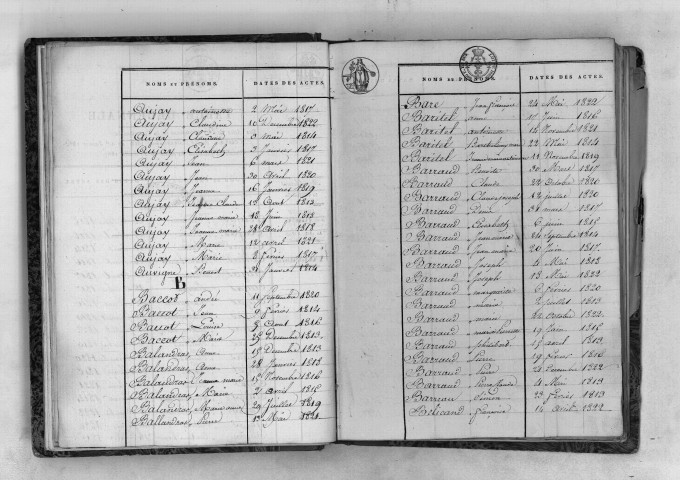 NOMS ET PRÉNOMS. DATES DES ACTES.
Aujay antoinette 2 Mai 1817
Aujay Claudine 16 Decembre 1822
Aujay Claudine 6 Mai 1814
Aujay Elisabeth 3 Janvier 1817
Aujay Jean 6 mars 1821
Aujay Jean 30 Avril 1820
Aujay Jeanne 16 Janvier 1819
Aujay Claude 12 Aout 1813
Aujay Jeanne marie 18 Juin 1813
Aujay Jeanne marie 28 Avril 1818
Aujay Marie 12 avril 1821
Aujay Marie 2 Fevrier 1817
Auvigne Benoit 21 Janvier 1814
B
Baccot andré 11 Septembre 1820
Baccot Jean 9 Fevrier 1814
Baccot Louise 8 Aout 1816
Baccot Marie 25 Decembre 1813
Balandras Anne 15 Decembre 1813
Balandras Anne 28 Janvier 1818
Balandras Jeanne marie 15 Novembre 1816
Balandras Marie 2 Avril 1816
Balandras Marie anne 29 Juillet 1819
Ballandras Pierre Mai 1821
NOMS ET PRÉNOMS. DATES DES ACTES.
Bare Jean francois 24 Mai 1822
Baritel anne 17 Juin 1816
Baritel antoinette 14 Novembre 1821
Baritel Barthelemy 22 Mai 1814
Baritel 11 Novembre 1819
Barraud Benoite 30 1817
Barraud Claude 22 Octobre 1820
Barraud Claude joseph 12 Juillet 1820
Barraud Denis 31 mars 1817
Barraud Elisabeth 6 Juin 1815
Barraud Jean marie 14 Septembre 1814
Barraud 20 Juin 1817
Barraud Joseph 4 Mai 1813
Barraud Joseph 13 Mai 1822
Barraud marguerite 6 Fevrier 1820
Barraud marie 2 Juillet 1813
Barraud marie 22 Octobre 1822
Barraud 19 Juin 1815
Barraud Philibert 25 avril 1813
Barraud Pierre 19 Fevrier 1816
Barraud Pierre 24 Decembre 1822
Barraud Pierre 4 Mai 1813
Barraud Simon 23 Fevrier 1813
Belicand francoise 14 1822